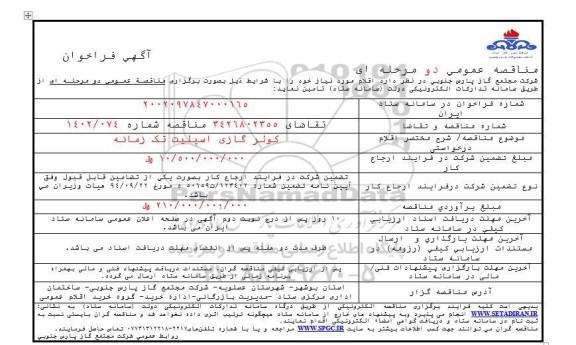 آگهی فراخوان
مناقصه عمومی دو مرحله ای
شرکت مجتمع گاز پارس جنوبی در نظر دارد اقلام مورد نیاز خود را با شرایط ذیل بصورت برگزاری مناقصه عمومی دو مرحله ای از
طریق سامانه تدارکات الکترونیکی دولت (سامانه ستاد) تامین نماید:
شماره فراخوان در سامانه ستاد ایران
۲۰۰۲۰۹۷۸۴۷۰۰۰۱۶۵
شماره مناقصه و تقاضا
تقاضای ۳۴۲۶۸۰۲۳۵۵ مناقصه شماره ۱۴۰۲/۰۷۴
موضوع مناقصه/ شرح مختصر اقلام درخواستی
کولر گازی اسپلیت تک زمانه
مبلغ تضمین شرکت در فرایند ارجاع کار
۱۰/۵۰۰/۰۰۰/۰۰۰ ریال
نوع تضمین شرکت درفرایند ارجاع کار
تضمین شرکت در فرایند ارجاع کار بصورت یکی از تضامین قابل قبول وفق
آیین نامه تضمین شماره ۱۲۳۴۰۲/ت۵۰۶۵۹ ه مورخ ۹۴/۰۹/۲۲ هیات وزیران می
باشد.
مبلغ برآوردی مناقصه
۲۱۰/۰۰۰/۰۰۰/۰۰۰ ریال
آخرین مهلت دریافت اسناد ارزیابی کیفی در سامانه ستاد
۱۰ روز پس از درج نوبت دوم آگهی در صفحه اعلان عمومی سامانه ستاد
ایران می باشد.
آخرین مهلت بارگذاری و ارسال مستندات ارزیابی کیفی (رزومه) در سامانه ستاد
ظرف مدت دو هفته پس از انقضای مهلت دریافت اسناد می باشد.
آخرین مهلت بارگذاری پیشنهادات فنی/ مالی در سامانه ستاد
پس از ارزیابی کیفی مناقصه گران، مستندات دریافت پیشنهاد فنی و مالی بهمراه
برنامه زمانی از طریق سامانه ستاد ارسال می گردد.
آدرس مناقصه گزار
استان بوشهر- شهرستان عسلویه- شرکت مجتمع گاز پارس جنوبی- ساختمان
اداری مرکزی ستاد -مدیریت بازرگانی-اداره خرید- گروه خرید اقلام عمومی
بدیهی است کلیه فرآیند برگزاری مناقصه الکترونیکی از طریق درگاه سامانه تدارکات الکترونیکی دولت (سامانه ستاد) به نشانی:
WWW.SETADIRAN.IR انجام می پذیرد وبه پیشنهاد های خارج از سامانه ستاد هیچگونه ترتیب اثری داده نخواهد شد و مناقصه گران بایستی نسبت به
ثبت نام در سامانه ستاد و دریافت گواهی امضاء الکترونیکی اقدام نمایند.
مناقصه گران می توانند جهت کسب اطلاعات بیشتر به سایت WWW.SPGC.IR مراجعه و یا با شماره تلفن‌های تماس حاصل فرمایند.
روابط عمومی شرکت مجتمع گاز پارس جنوبی